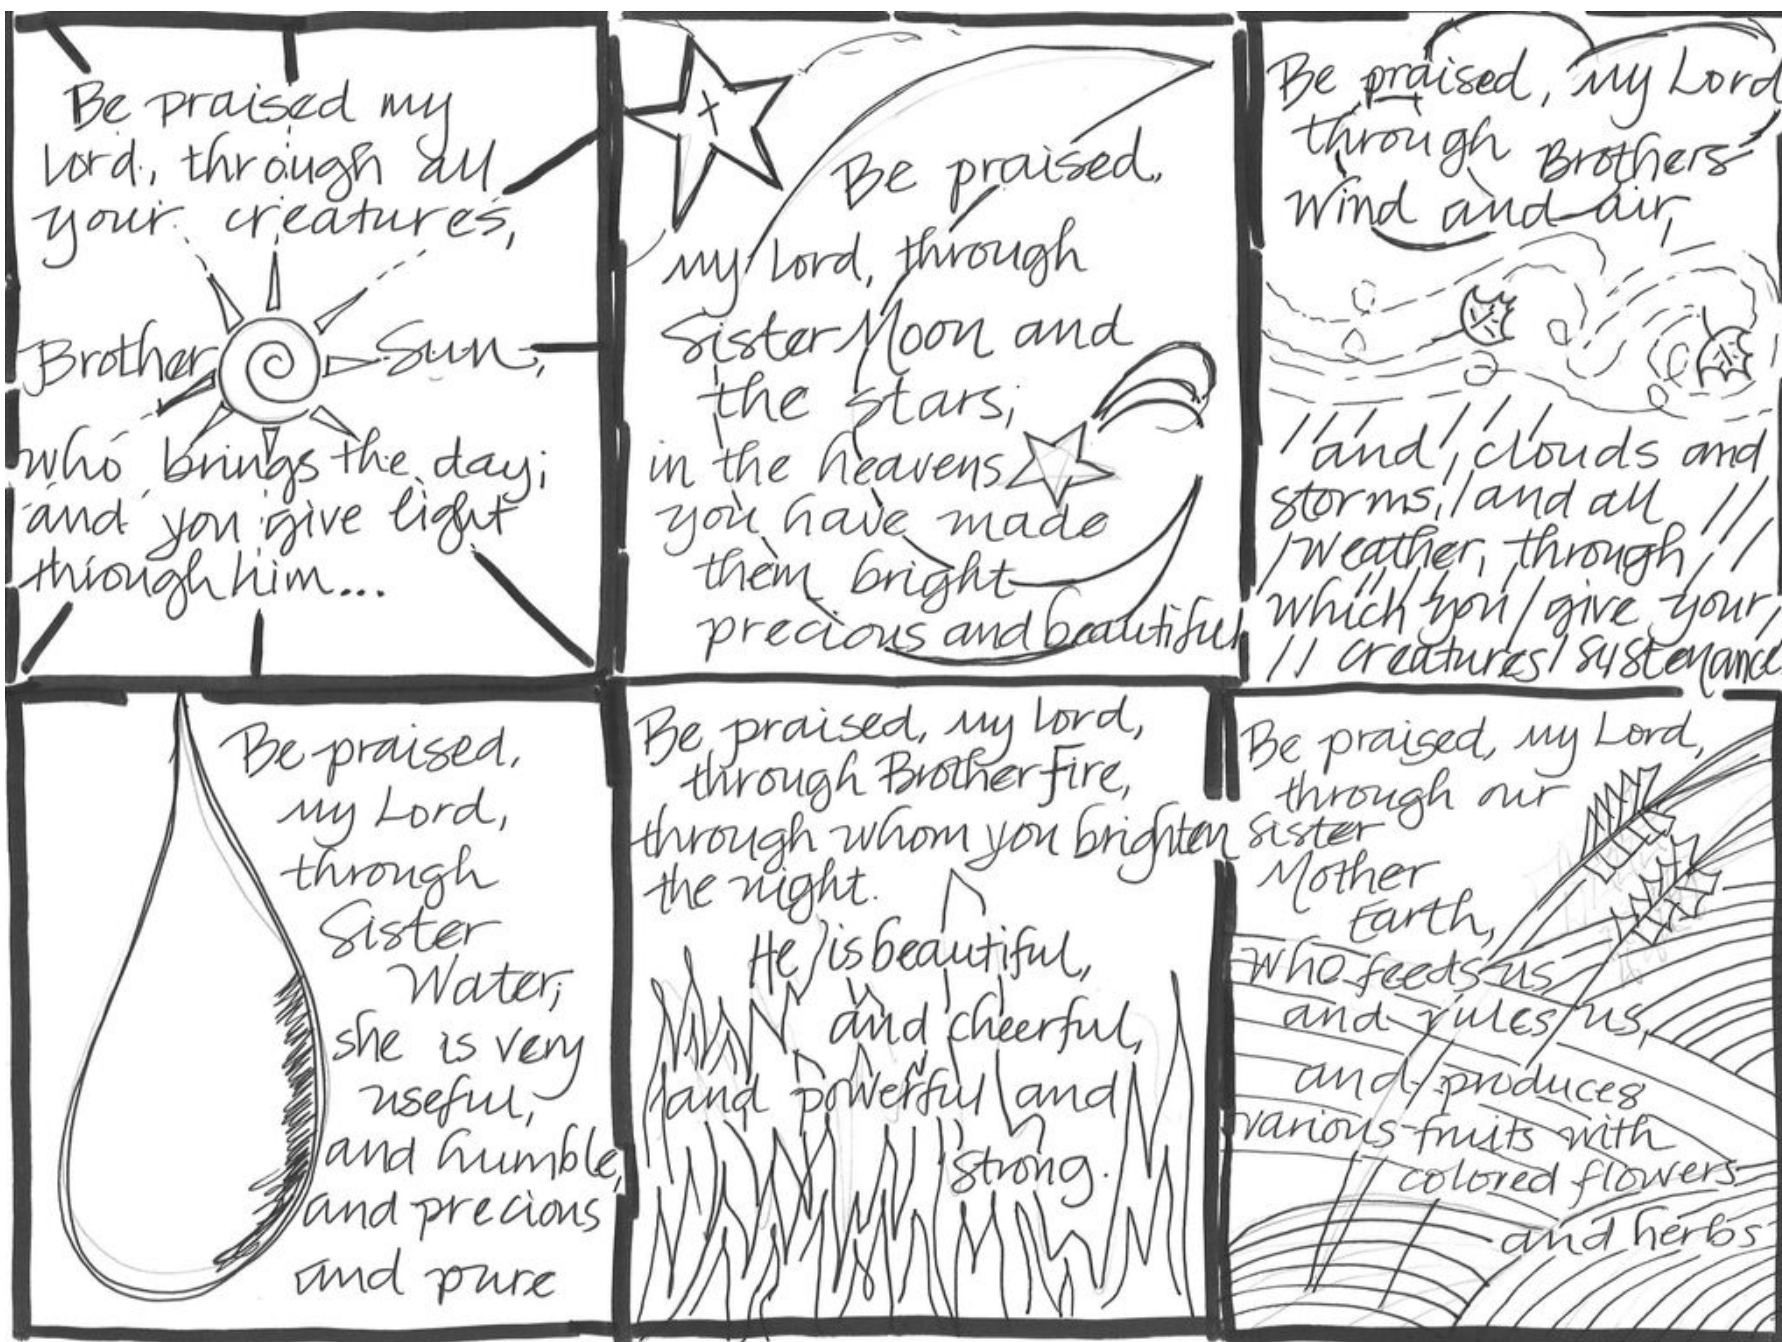 Be praised my
Lord, through all
your creatures,
Brother Sun,
who brings the day;
and you give light
through him...
Be praised,
my Lord, through
Sister Moon and
the stars;
in the heavens
you have made
them bright
precious and beautiful
Be praised, my Lord
through Brothers
Wind and air,
and clouds and
storms, and all
weather, through
which you give your
creatures sustenance
Be praised,
my Lord,
through
Sister
Water;
she is very
useful,
and humble,
and precious
and pure
Be praised, my Lord,
through Brother Fire,
through whom you brighten
the night.
He is beautiful,
and cheerful,
and powerful and
strong.
Be praised, my Lord,
through our
Sister
Mother
Earth,
who feeds us
and rules us,
and produces
various fruits with
colored flowers
and herbs